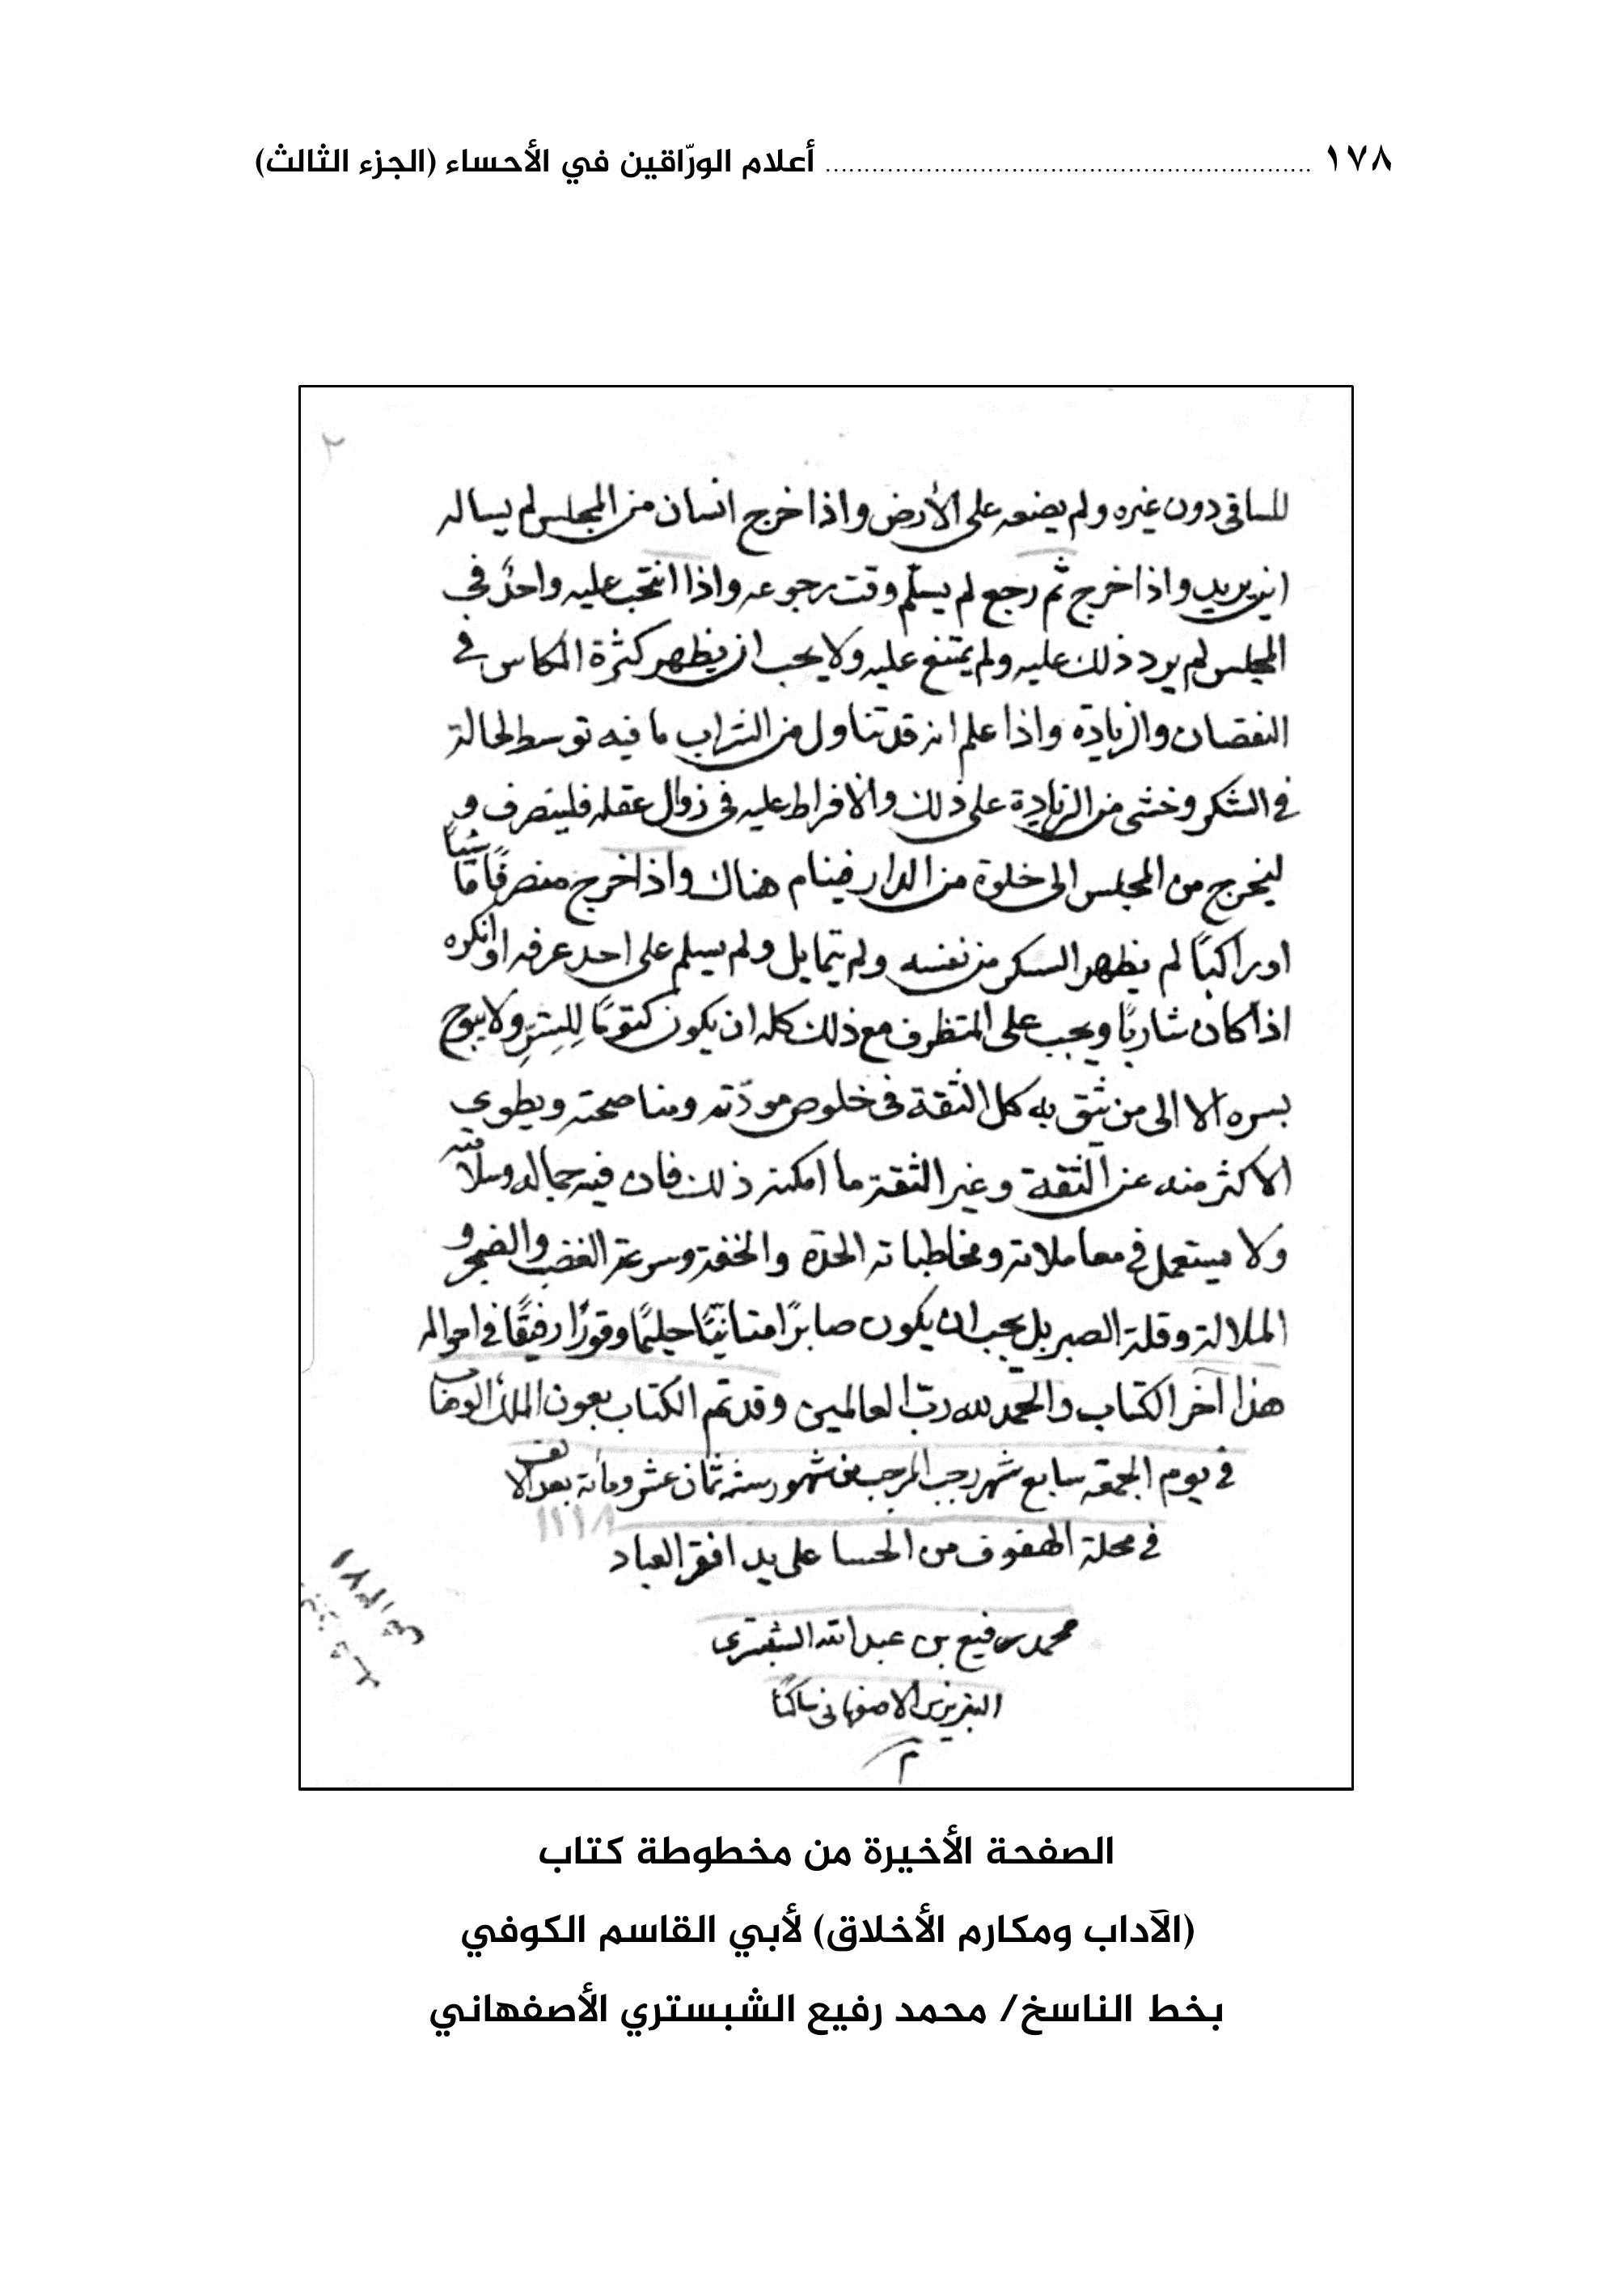 ١٧٨ ............................................................... أعلام الورّاقين في الأحساء (الجزء الثالث)
للساقي دون غيره ولم يضعه على الأرض واذا خرج انسان من المجلس لم يساله
اين يريد واذا خرج ثم رجع لم يسلّم وقت رجوعه واذا انتخب عليه واحدٌ في
المجلس لم يرد ذلك عليه ولم يمتنع عليه ولا يجب ان يظهر كثرة المكاس في
النقصان والزيادة واذا علم انه قد تناول من الشراب ما فيه توسط لحالة
في السّكر وخشى من الزيادة على ذلك والافراط عليه في زوال عقله فلينصرف و
ليخرج من المجلس الى خلوة من الدار فينام هناك واذا خرج منصرفًا ماشيًا
او راكبًا لم يظهر السكر من نفسه ولم يتمايل ولم يسلم على احد عرفه او انكره
اذا كان شاربًا ويجب على المتظرف مع ذلك كله ان يكون كتومًا للِسِّرِّ ولا يبوح
بسره الا الى من يثق به كل الثقة في خلوص مودّته ومناصحته ويطوي
الاكثر منه عن الثقة وغير الثقة ما امكنه ذلك فان فيه جماله وسلامته
ولا يستعمل في معاملاته ومخاطباته الحدّة والخفة وسرعة الغضب والضجر و
الملالة وقلة الصبر بل يجب ان يكون صابرًا متانّيًا حليمًا وقورًا رفيقًا في احواله
هذا آخر الكتاب والحمد لله ربّ العالمين وقد تم الكتاب بعون الملك الوهاب
في يوم الجمعة سابع شهر رجب المرجب من شهور سنة ثمان عشر ومأة بعد الالف
١١١٨
في محلة الهفوف من الحسا على يد افقر العباد
محمد رفيع بن عبد الله الشبستري
التبريزي الاصفهاني ساكنًا
م
الصفحة الأخيرة من مخطوطة كتاب
(الآداب ومكارم الأخلاق) لأبي القاسم الكوفي
بخط الناسخ/ محمد رفيع الشبستري الأصفهاني